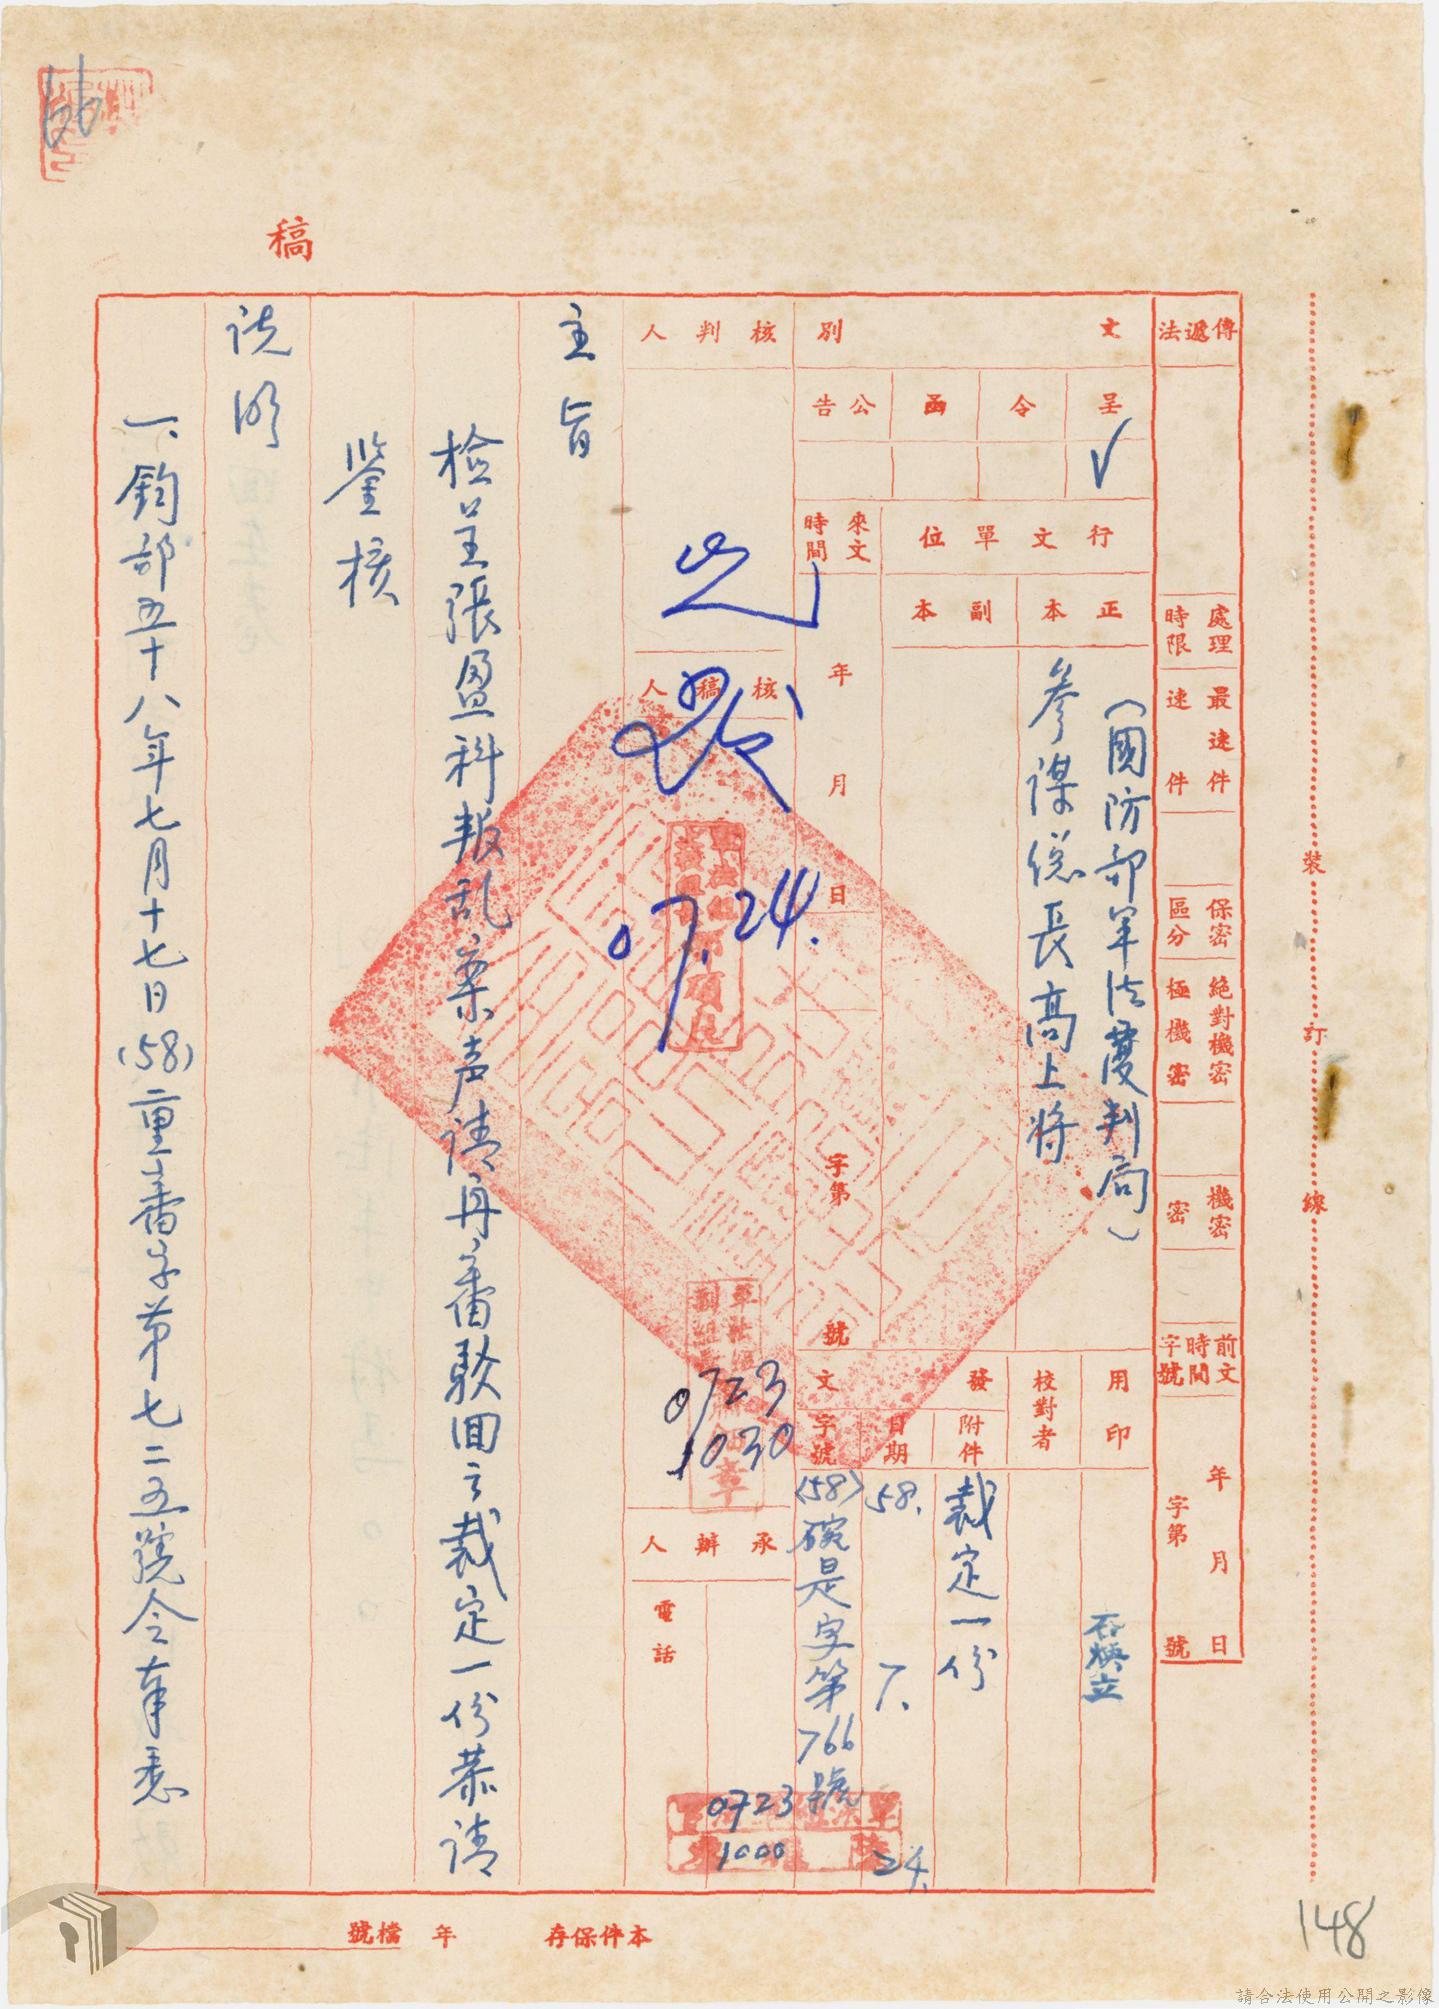 稿
傳遞法
處理時限
最速件
速件
保密區分
絕對機密
極機密
機密
密
前文時間字號
年月日
字第號
文別
呈
令
函
公告
✓
行文單位
正本
副本
(國防部軍法覆判局)
參謀總長高上將
來文時間
年月日
字第號
用印
校對者
發文
附件
日期
字號
裁定一份
58.
7.
24.
(58)
是字第766號
核判人
核稿人
07.24.
0723
1030
承辦人
電話
0723
1000
主旨
檢呈張盈科叛乱案声请再審駁回之裁定一份恭请
鉴核
说明
一、鈞部五十八年七月十七日(58)重審字第七二五號令奉悉
裝
訂
線
本件保存
年
檔號
148
請合法使用公開之影像